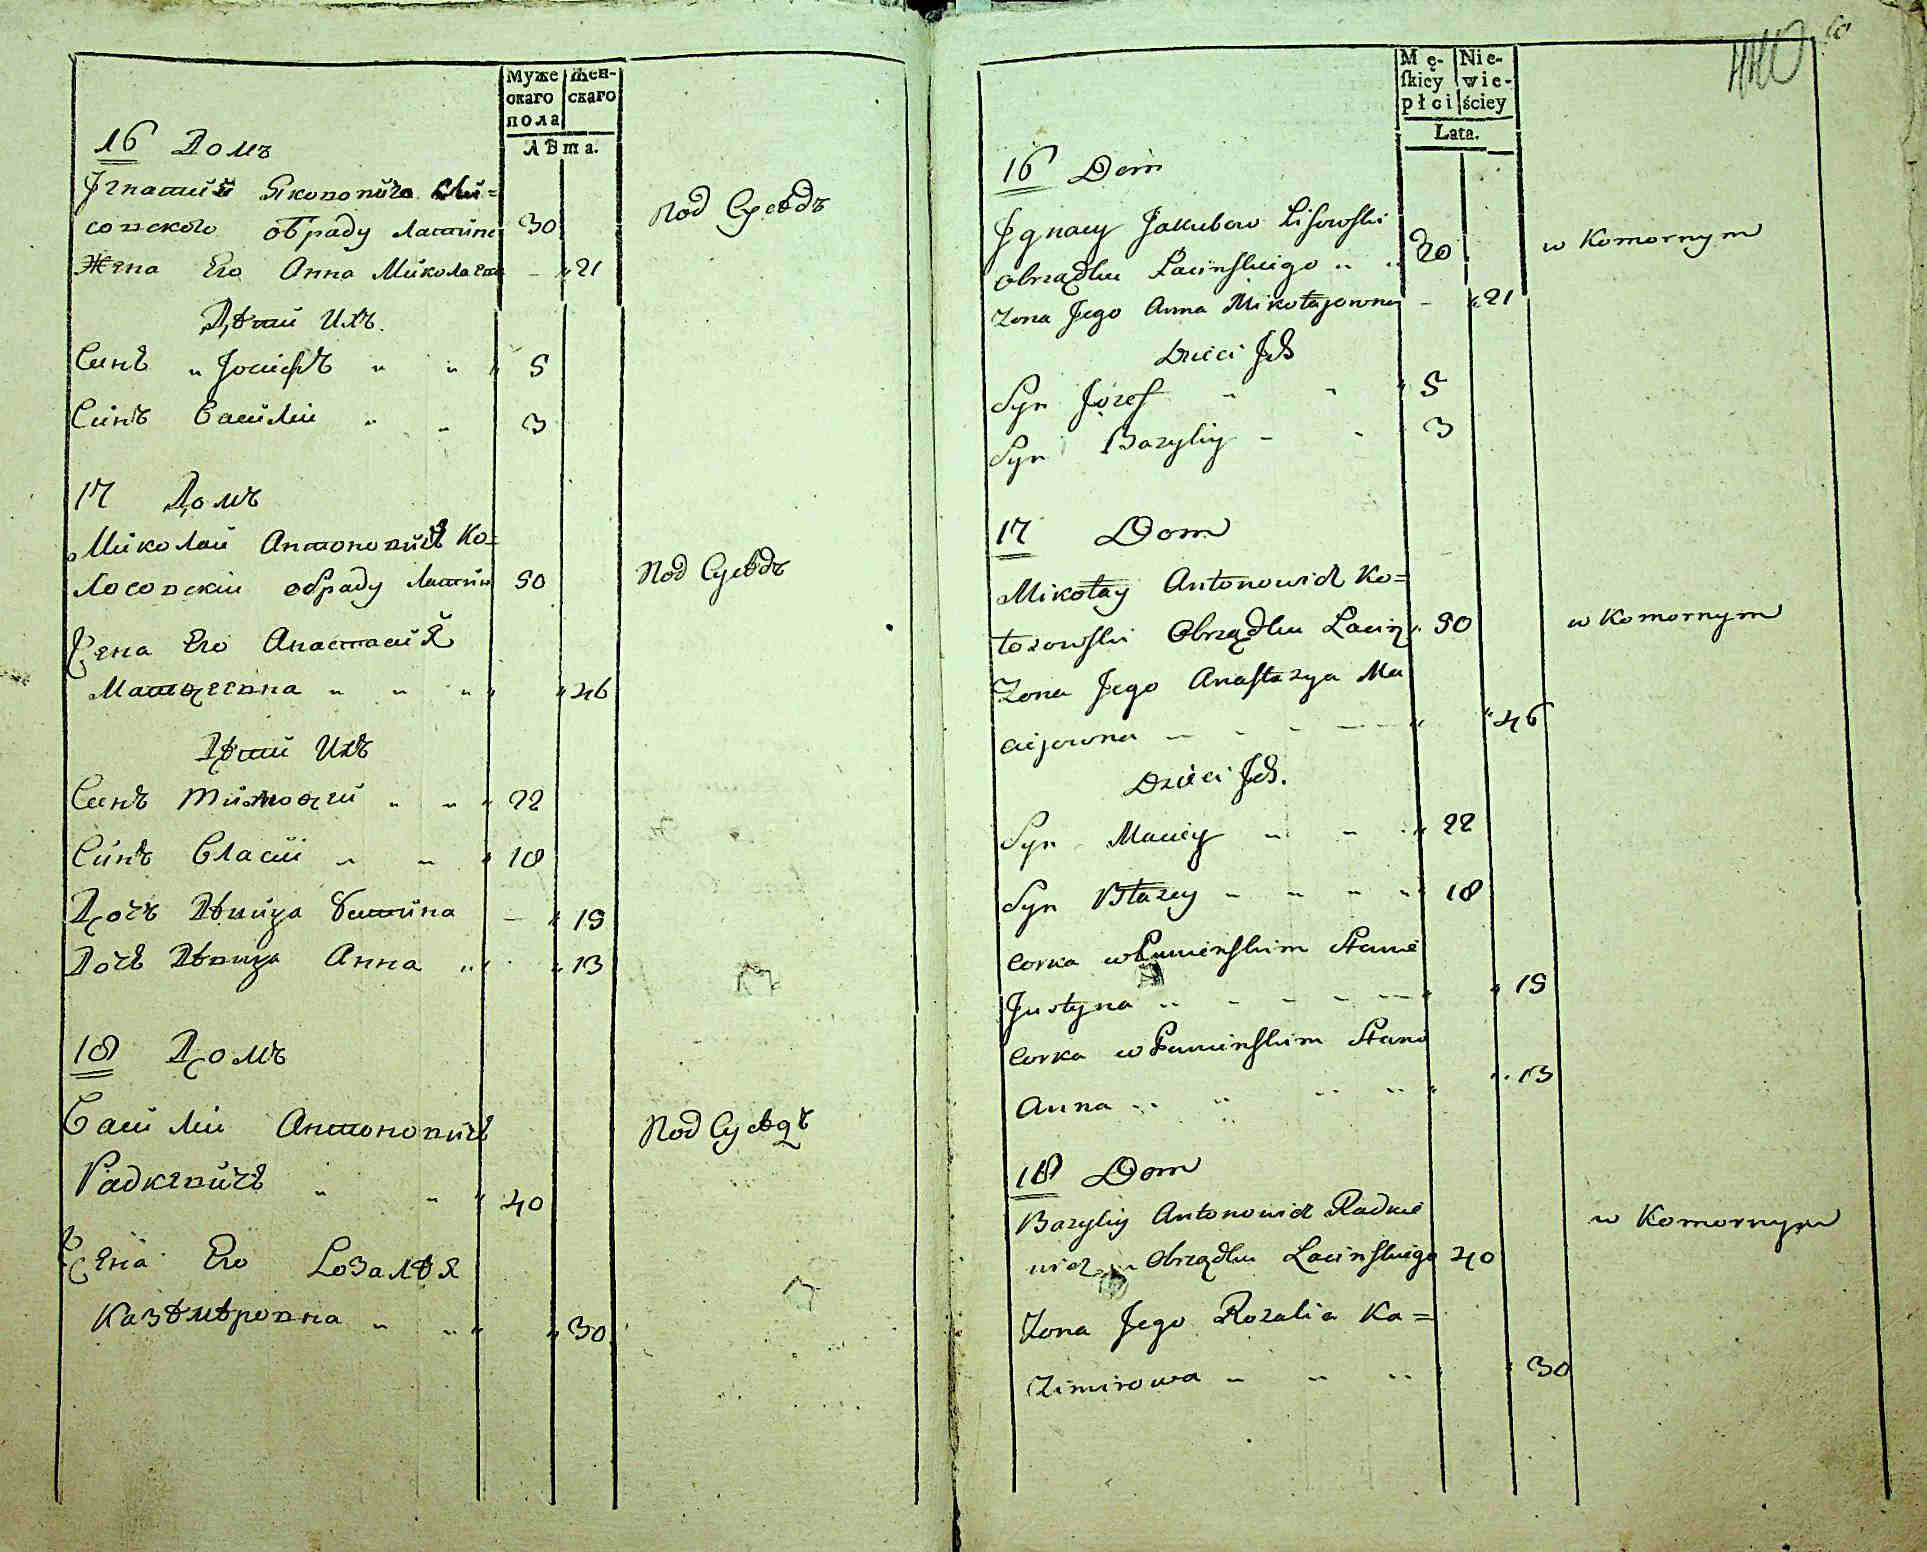 Муже Жен-
скаго скаго
пола
лѣта.
16 Домъ
Игнатий Яковович Ли=
совского обраду Латинс 30
Под Суседъ
Жена Его Анна Миколаев - " 21
Дѣти Ихъ.
Синъ " Иосифъ " " " 5
Синъ Василии " " 3
17 Домъ
Миколаи Антоновичъ Ко=
лосовскiи обраду Латин 50
Под Суседъ
Жена Его Анастасия
Матфеевна " " " " " 46
Дѣти Ихъ
Синъ Тимофеи " " " 22
Синъ Власии " " " 18
Дочъ Дѣвица Устина - " 15
Дочъ Дѣвица Анна " " " 13
18 Домъ
Василии Антоновичъ
Под Суседъ
Радкевичъ " " " 40
Жена Его Розалѣя
Казѣмѣровна " " " " 30
Mę- Nie-
skiey wie-
płci ściey
Lata.
16 Dom
Jgnacy Jakubow Lisowski
obrządku Łacinskiego " " 30
w Komornym
Zona Jego Anna Mikołajowna - " 21
Dzieci Jch
Syn Józef " " " 5
Syn Bazyliy - - 3
17 Dom
Mikołay Antonowicz Ko=
łosowski Obrządku Łacin " 50
w Komornym
Zona Jego Anastazya Ma
ciejowna - - - - " " 46
Dzieci Jch.
Syn Maciey " " " 22
Syn Błazey " " " " 18
Corka w Panienskim Stanie
Justyna " - - - - " " 15
Corka w Panienskim Stani
Anna " " " " " " 13
18 Dom
Bazyliy Antonowicz Radkie
wicz " Obrządku Łacinskiego 40
w Komornym
Zona Jego Rozalia Ka=
zimirowa " " " " 30